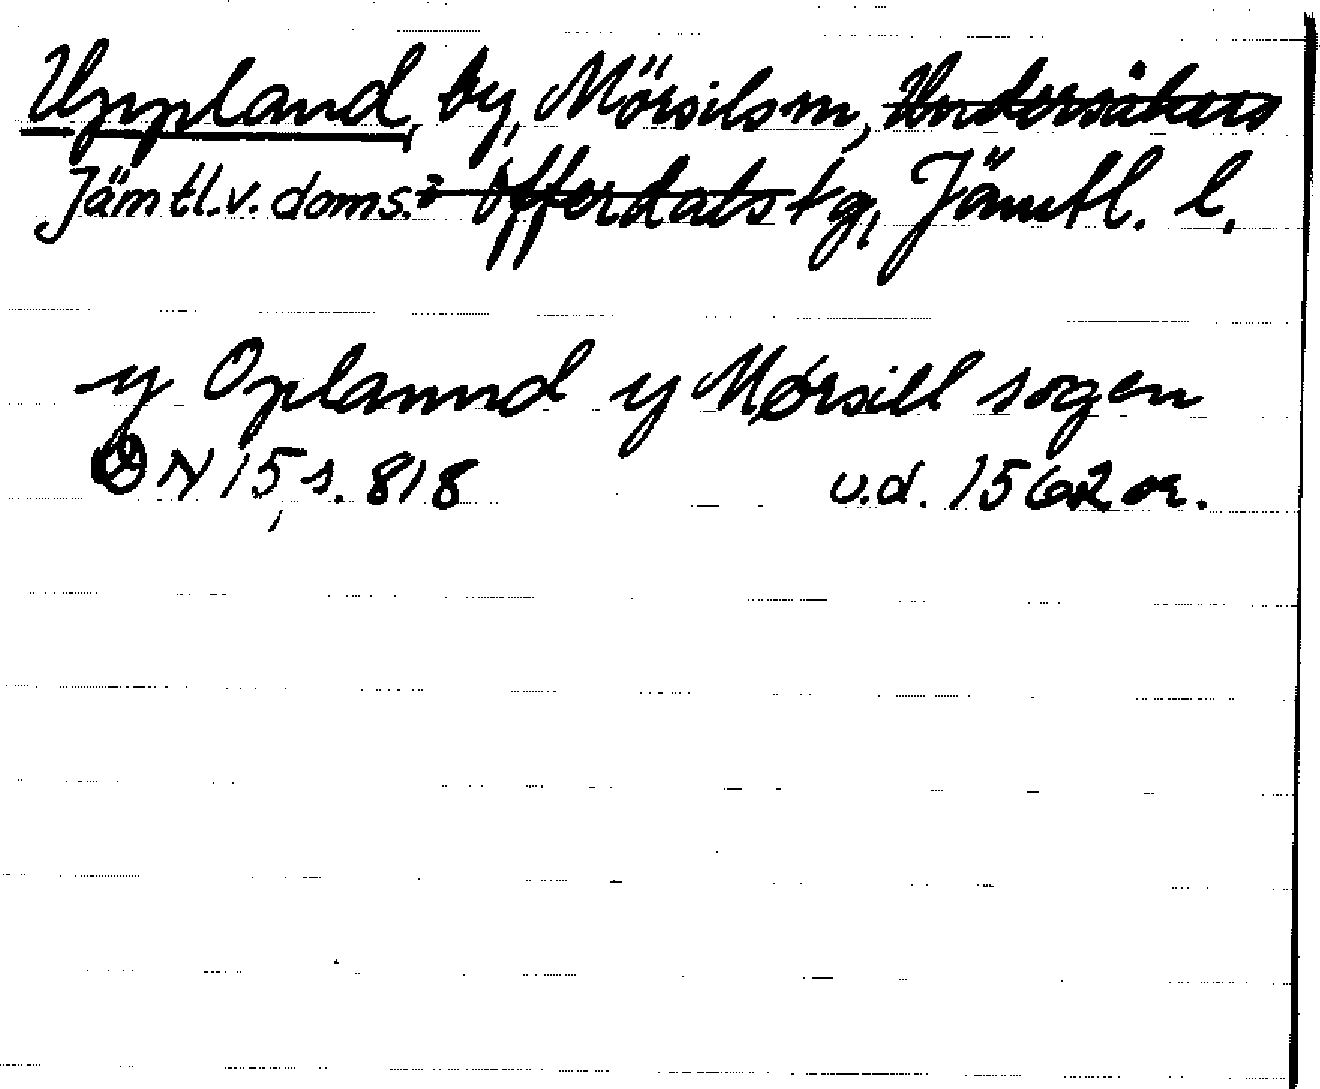 Uppland, by, Mörsils sn, Undersåkers
Jämtl. v. doms. o Offerdals tg, Jämtl. l.
y Oplannd y Mørsill sogen
DN 15, s. 818 u.d. 1562 or.